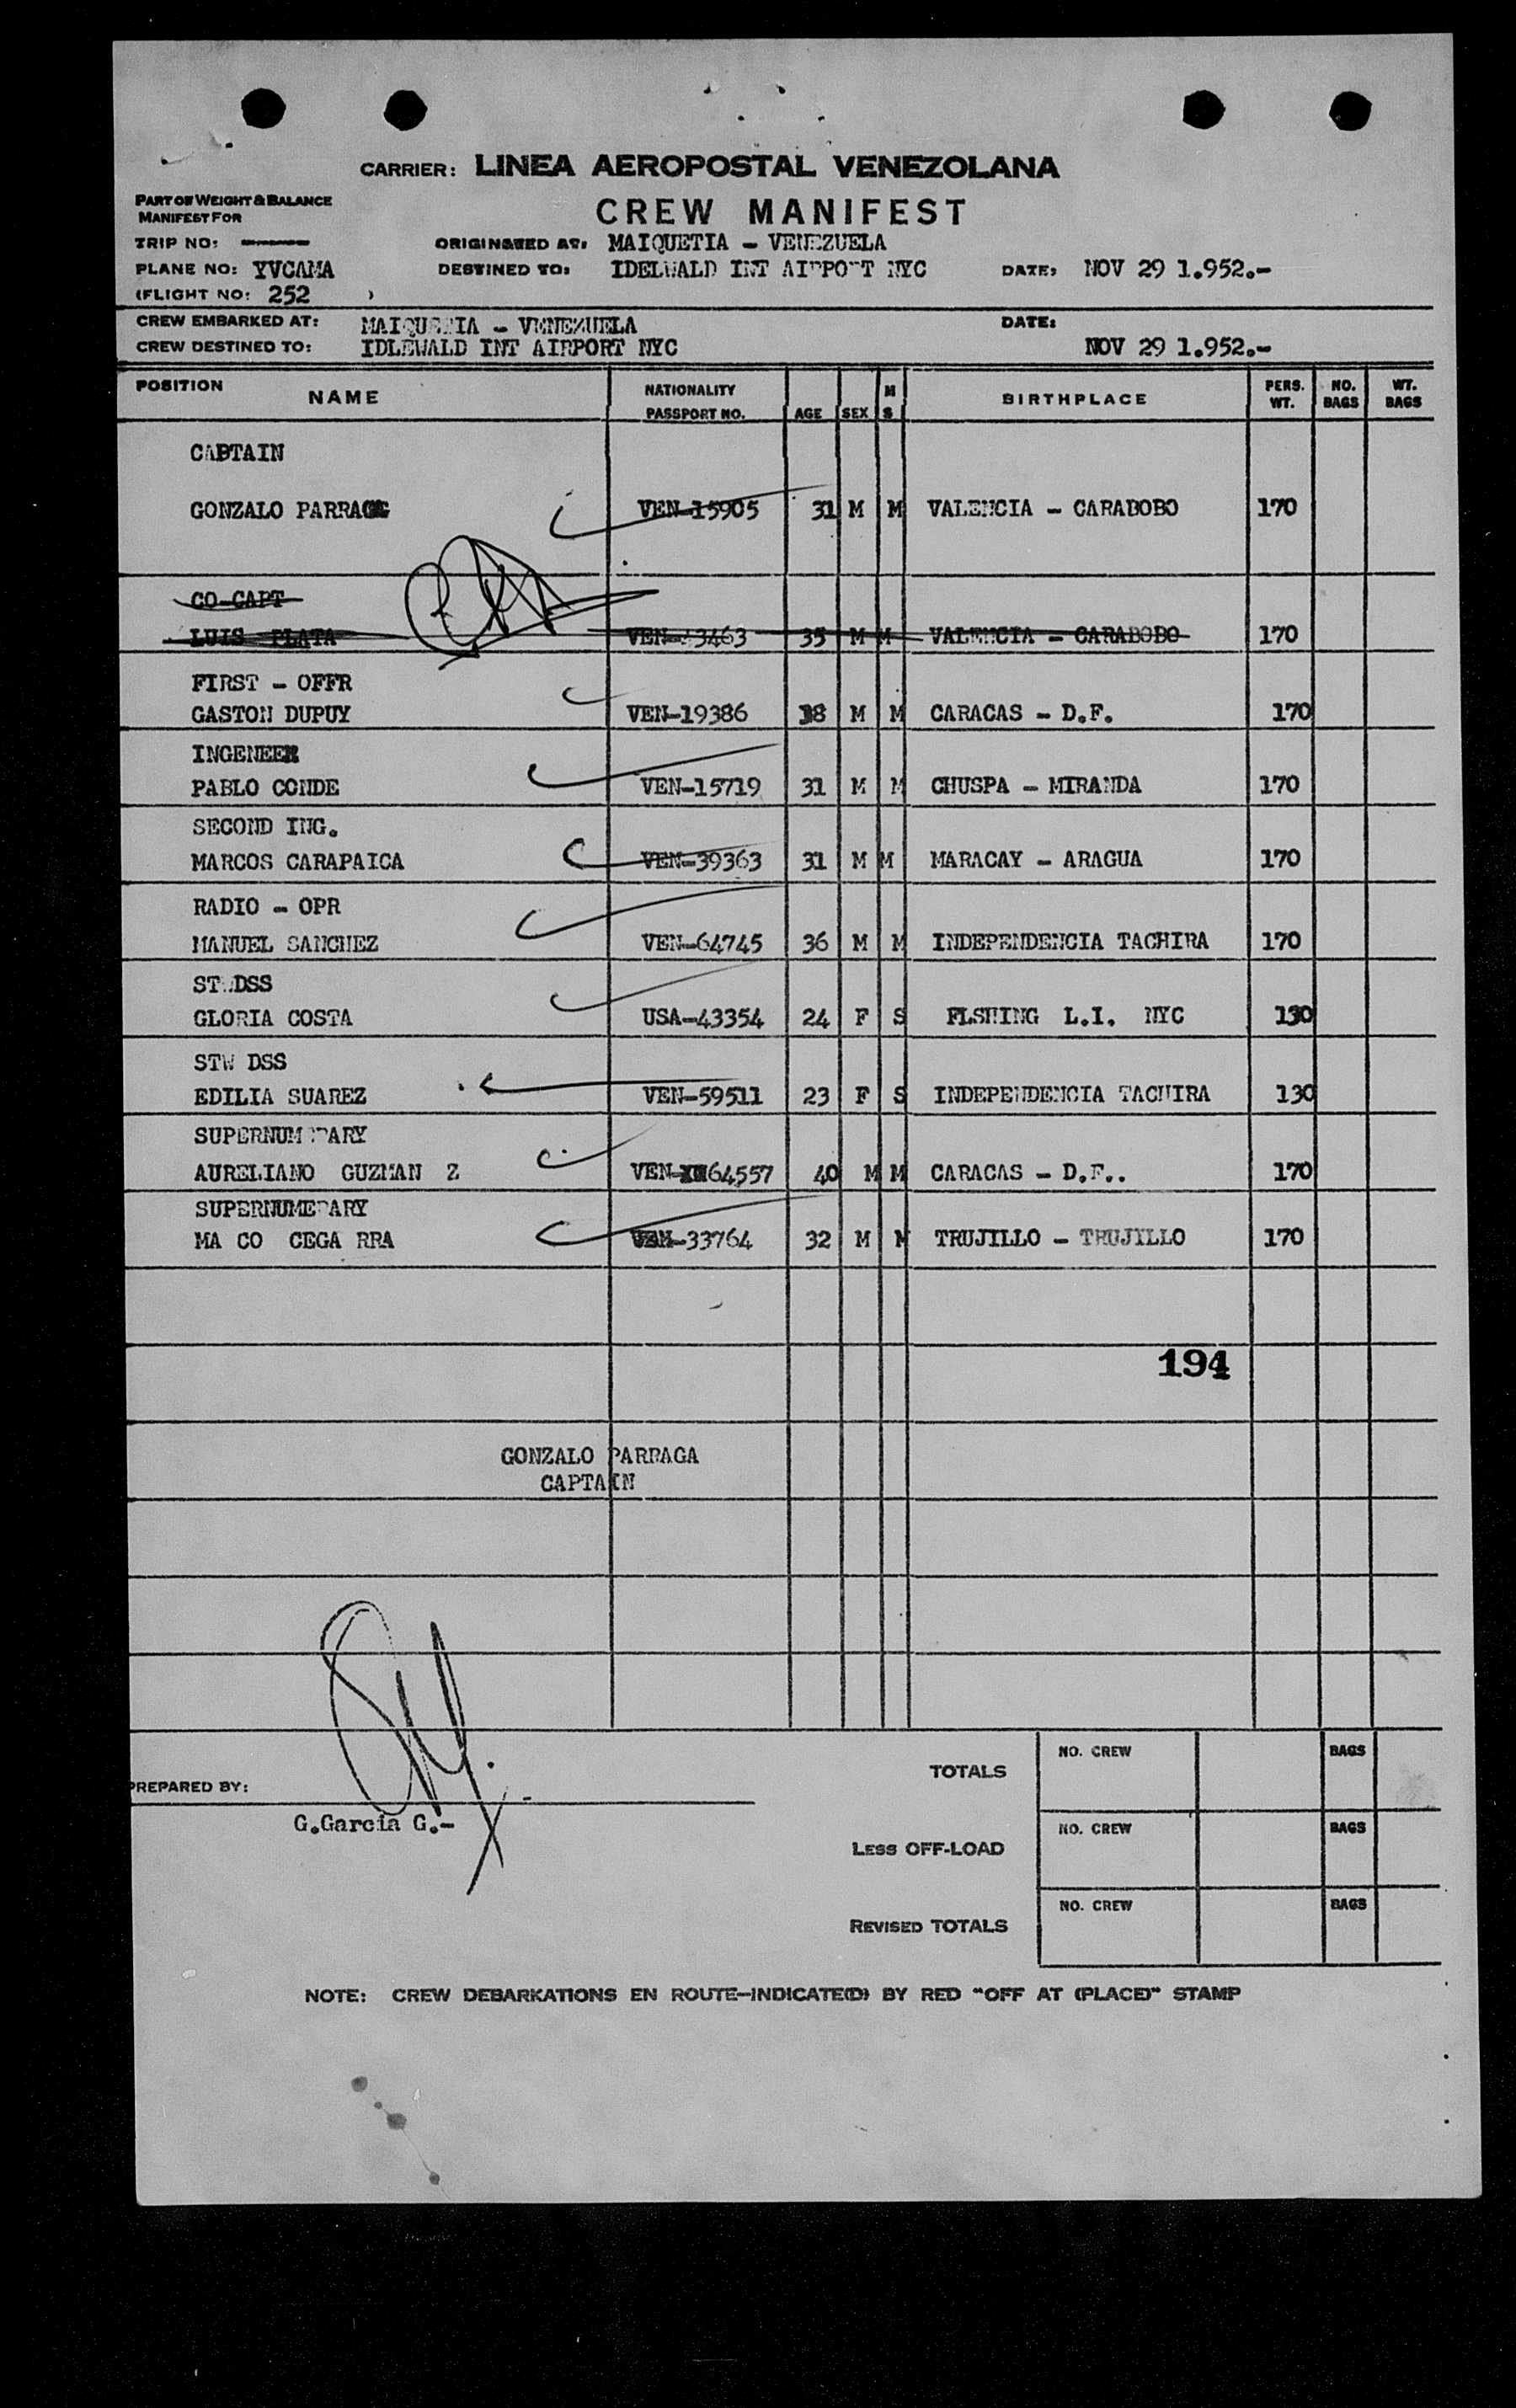 CARRIER: LINEA AEROPOSTAL VENEZOLANA
PART OF WEIGHT & BALANCE
MANIFEST FOR
CREW MANIFEST
TRIP NO: ORIGINATED AT: MAIQUETIA - VENEZUELA
PLANE NO: YVCAMA DESTINED TO: IDELWALD INT AIRPORT NYC DATE: NOV 29 1.952.-
(FLIGHT NO: 252 )
CREW EMBARKED AT: MAIQUETIA - VENEZUELA DATE:
CREW DESTINED TO: IDLEWALD INT AIRPORT NYC NOV 29 1.952.-
POSITION NAME NATIONALITY PASSPORT NO. AGE SEX M S BIRTHPLACE PERS. WT. NO. BAGS WT. BAGS
CAPTAIN
GONZALO PARRAGA VEN-15905 31 M M VALENCIA - CARABOBO 170
CO-CAPT
LUIS PLATA 35 M M VALENCIA - CARABOBO 170
FIRST - OFFR
GASTON DUPUY VEN-19386 38 M M CARACAS - D.F. 170
INGENEER
PABLO CONDE VEN-15719 31 M M CHUSPA - MIRANDA 170
SECOND ING.
MARCOS CARAPAICA VEN-39363 31 M M MARACAY - ARAGUA 170
RADIO - OPR
MANUEL SANCHEZ VEN-64745 36 M M INDEPENDENCIA TACHIRA 170
STWDSS
GLORIA COSTA USA-43354 24 F S FLSHING L.I. NYC 130
STW DSS
EDILIA SUAREZ VEN-59511 23 F S INDEPENDENCIA TACHIRA 130
SUPERNUMERARY
AURELIANO GUZMAN Z VEN-64557 40 M M CARACAS - D.F.. 170
SUPERNUMERARY
MA CO CEGA RRA VEN-33764 32 M M TRUJILLO - TRUJILLO 170
194
GONZALO PARRAGA
CAPTAIN
TOTALS NO. CREW BAGS
PREPARED BY:
G.Garcia G.-
LESS OFF-LOAD NO. CREW BAGS
REVISED TOTALS NO. CREW BAGS
NOTE: CREW DEBARKATIONS EN ROUTE-INDICATE(D) BY RED "OFF AT (PLACE)" STAMP